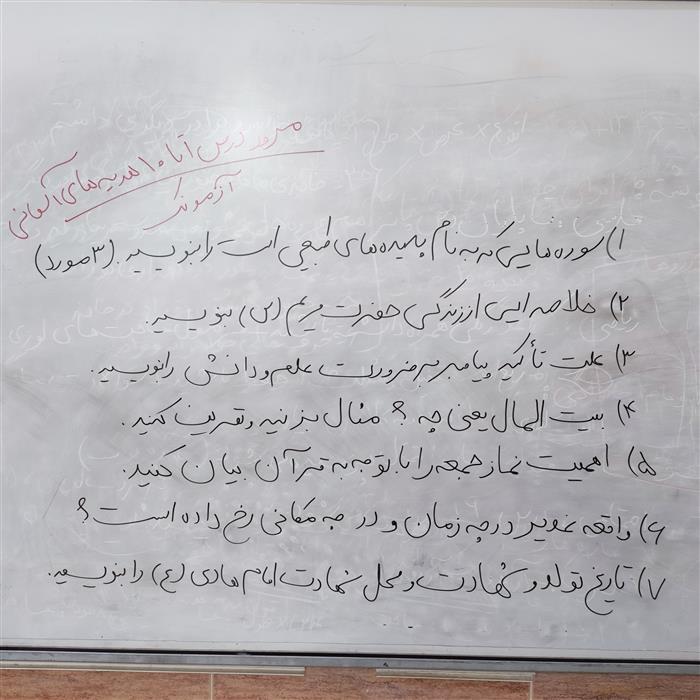 مرور درس ۱ تا ۱۰ هدیه های آسمانی
آزمونک
۱) سوره هایی که به نام پدیده های طبیعی است را بنویسید. (۳ مورد)
۲) خلاصه ایی از زندگی حضرت مریم (س) بنویسید.
۳) علت تأکید پیامبر بر ضرورت علم و دانش را بنویسید.
۴) بیت المال یعنی چه ؟ مثال بزنید و تعریف کنید.
۵) اهمیت نماز جمعه را با توجه به قرآن بیان کنید.
۶) واقعه غدیر در چه زمان و در چه مکانی رخ داده است؟
۷) تاریخ تولد و شهادت و محل شهادت امام هادی (ع) را بنویسید.